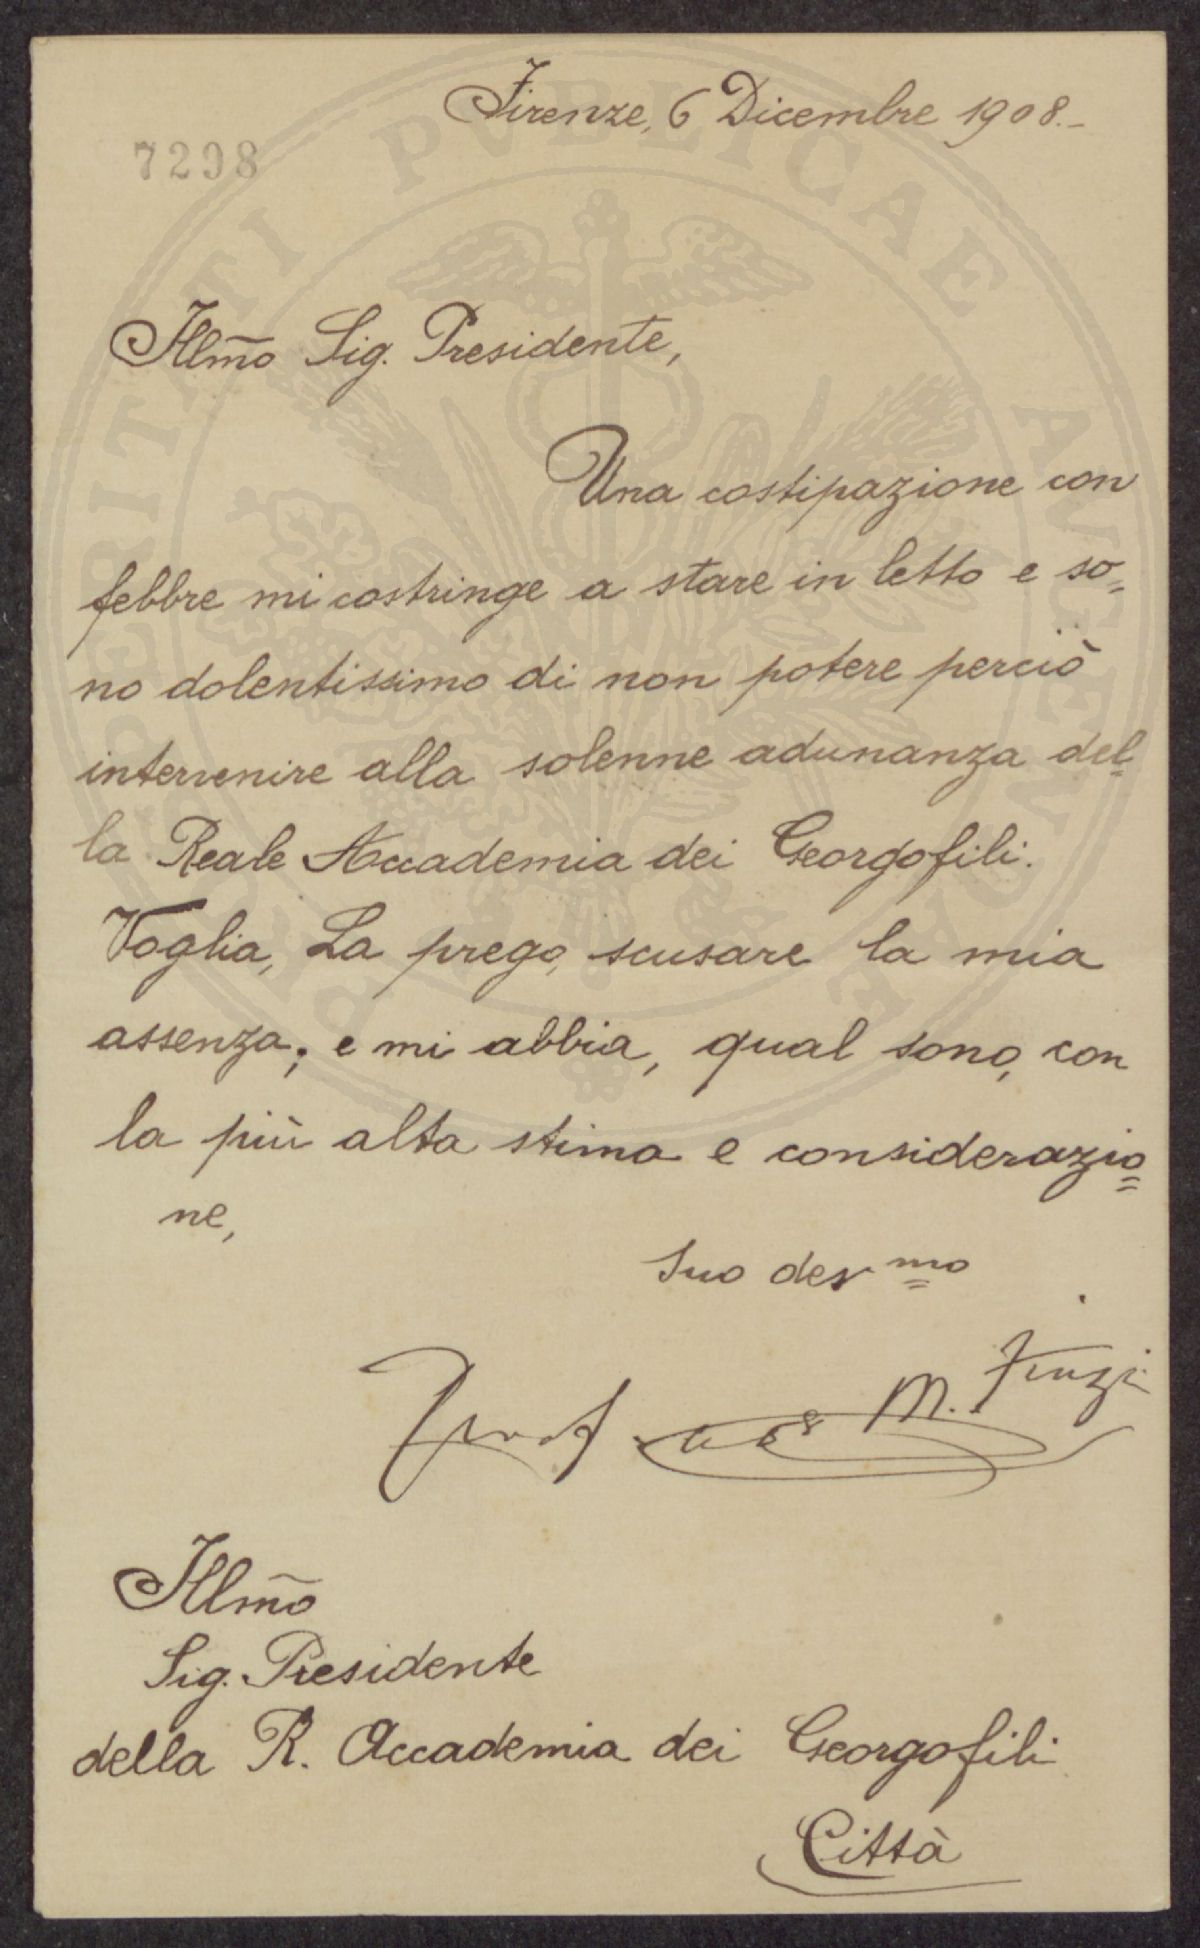 Firenze, 6 Dicembre 1908.-
7298
Illm̃o Sig. Presidente,
Una costipazione con
febbre mi costringe a stare in letto e so=
no dolentissimo di non potere perciò
intervenire alla solenne adunanza del=
la Reale Accademia dei Georgofili.
Voglia, La prego, scusare la mia
assenza; e mi abbia, qual sono, con
la più alta stima e considerazio=
ne,
Suo dev mo
Prof M. Finzi
Illm̃o
Sig. Presidente
della R. Accademia dei Georgofili
Città
PROSPERITATI PVBLICAE AVGENDAE